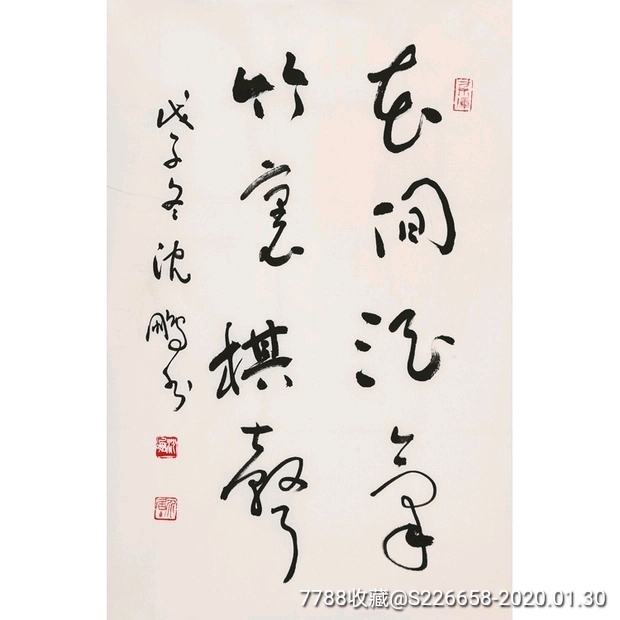 花間酒氣
竹裏棋聲
戊子冬沈鵬書
7788收藏@S226658-2020.01.30